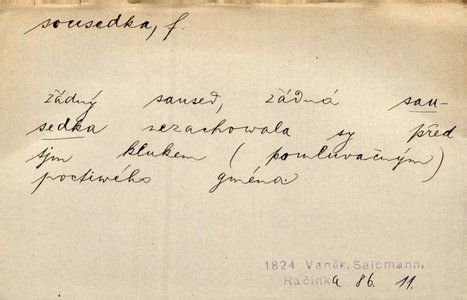 sousedka, f.
žádný saused, žádná sau-
sedka nezachowala sy před
tjm klukem (pomluvačným)
poctiwého gména
1824 Vaněk, Salcmann,
Račinka 86. 11.